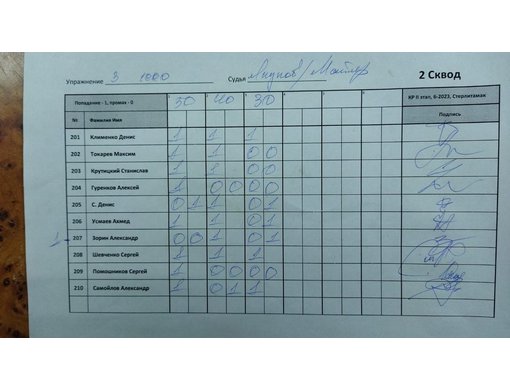 Упражнение 3 1000 Судья 2 Сквод
Попадание - 1, промах - 0 30 40 30 КР II этап, 6-2023, Стерлитамак
№ Фамилия Имя Подпись
201 Клименко Денис 1 1 1
202 Токарев Максим 1 1 0 0
203 Крутицкий Станислав 1 1 0 0
204 Гуренков Алексей 1 0 0 0 0
205 С. Денис 0 1 1 0 1
206 Усмаев Ахмед 1 1 0 1
1 - 207 Зорин Александр 0 0 1 0 1
208 Шевченко Сергей 1 1 1
209 Помошников Сергей 1 0 0 0 0
210 Самойлов Александр 1 0 1 1